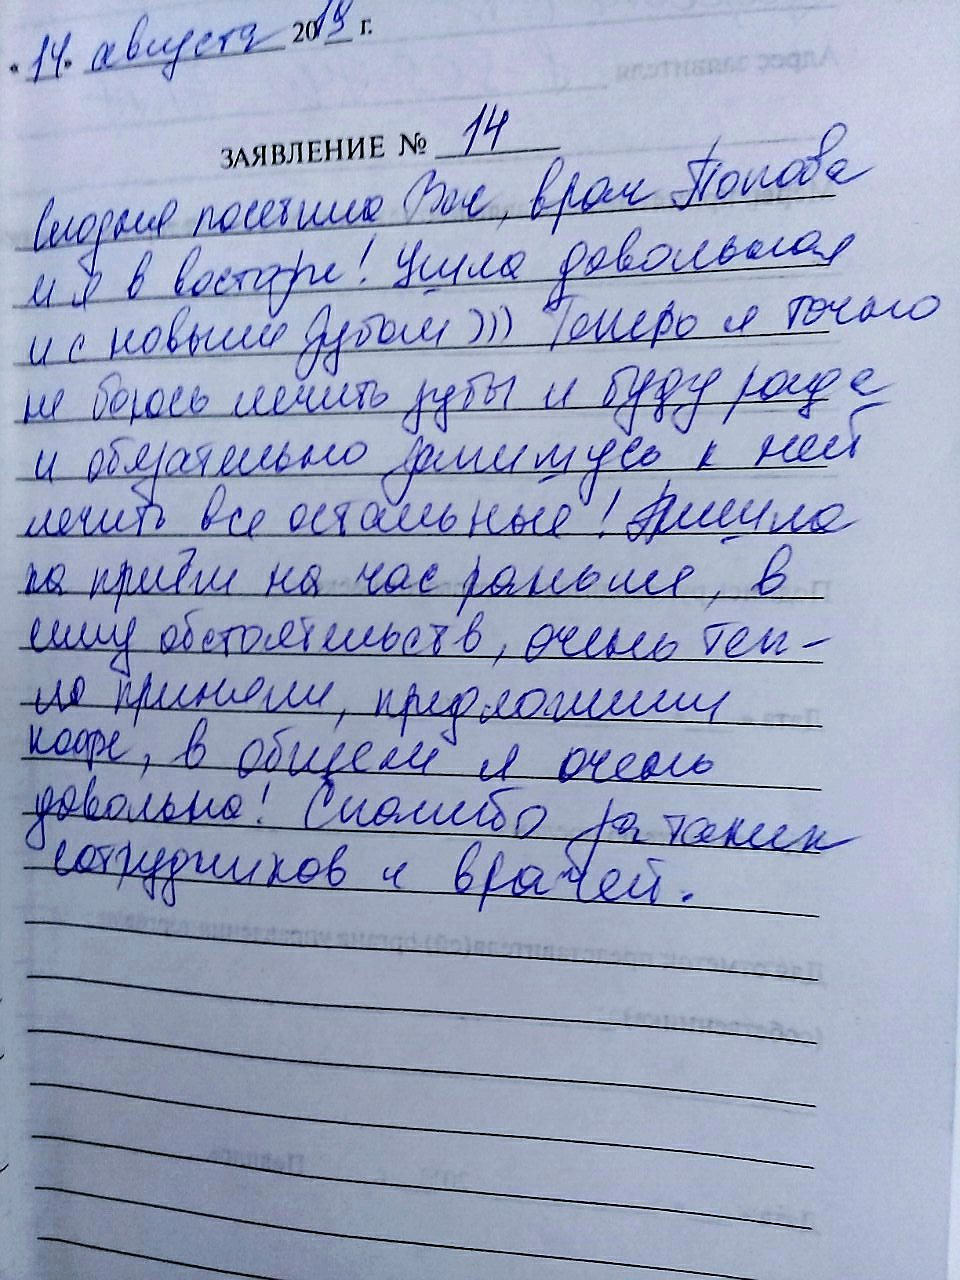 "14" августа 2019 г.
ЗАЯВЛЕНИЕ № 14
Сегодня посетила Вас, врач Попова
и я в восторге! Ушла довольная
и с новыми зубом))) Теперь я точно
не боюсь лечить зубы и буду рада
и обязательно запишусь к ней
лечить все остальные! Пришла
на приём на час раньше, в
силу обстоятельств, очень теп-
ло приняли, предложили
кофе, в общем я очень
довольна! Спасибо за таких
сотрудников и врачей.